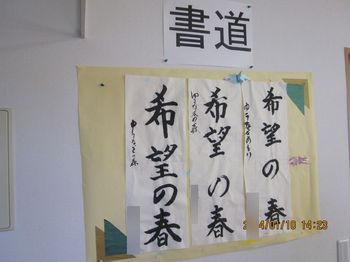 書道
希望の春
希望の春
希望の春
2014/01/10 14:23